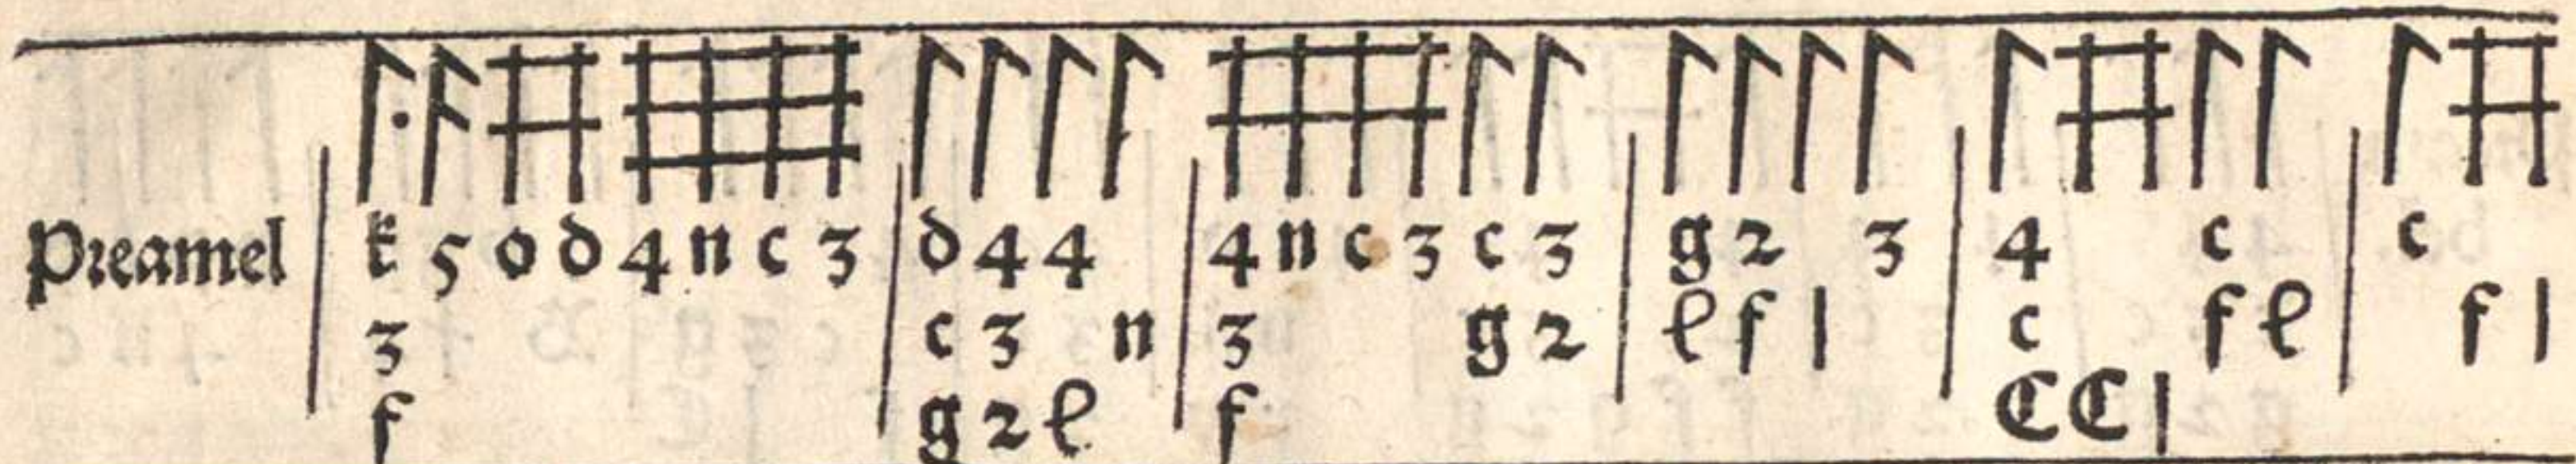 Preamel | k 5 o d 4 n c 3 | d 4 4 | 4 n c 3 c 3 | g 2 3 | 4 c | c
3 | c 3 n | 3 g 2 | e f 1 | c f e | f 1
f | g 2 e | f | C C 1